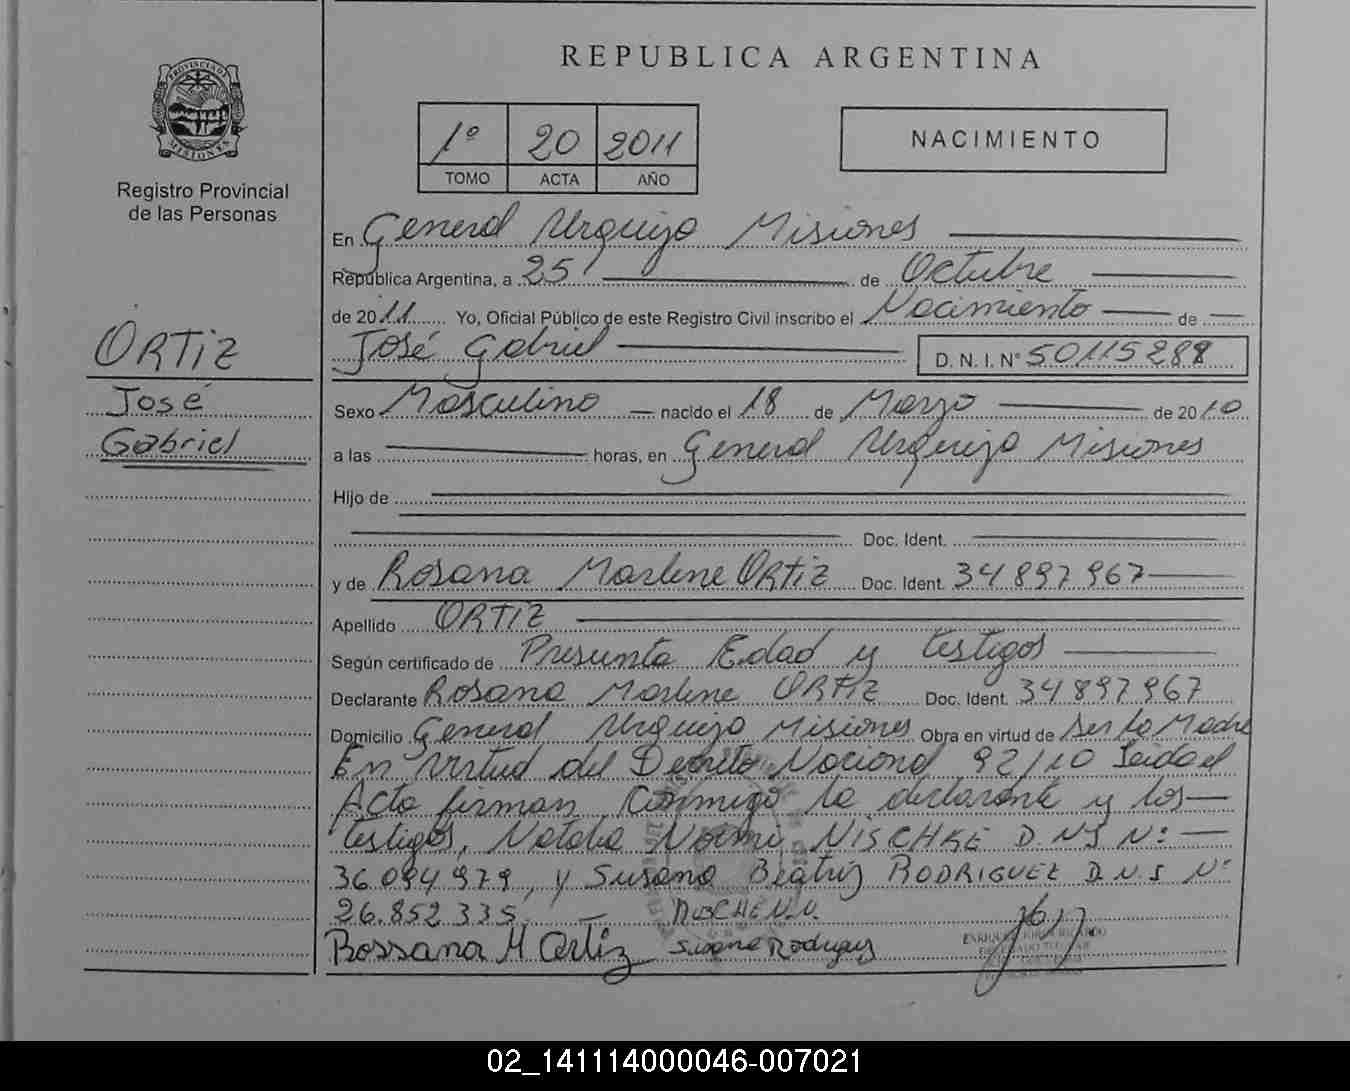 REPUBLICA ARGENTINA
PROVINCIA DE
MISIONES
Registro Provincial
de las Personas
1º 20 2011
TOMO ACTA AÑO
NACIMIENTO
ORTIZ
José
Gabriel
En General Urquiza Misiones
República Argentina, a 25 de Octubre
de 2011 Yo, Oficial Público de este Registro Civil inscribo el Nacimiento de
José Gabriel D. N. I. Nº 50115288
Sexo Masculino nacido el 18 de Marzo de 2010
a las horas, en General Urquiza Misiones
Hijo de
Doc. Ident.
y de Rosana Marlene ORTIZ Doc. Ident. 34897967
Apellido ORTIZ
Según certificado de Presunta Edad y testigos
Declarante Rosana Marlene ORTIZ Doc. Ident. 34897967
Domicilio General Urquiza Misiones Obra en virtud de ser la Madre
En virtud del Decreto Nacional 92/10 Leida el
Acta firman conmigo la declarante y los
testigos, Natalia Noemi NISCHKE D.N.I Nº
36.094.979, y Susana Beatriz RODRIGUEZ D.N.I Nº
26.852.335.
Rossana M Ortiz Susana Rodriguez
02_141114000046-007021